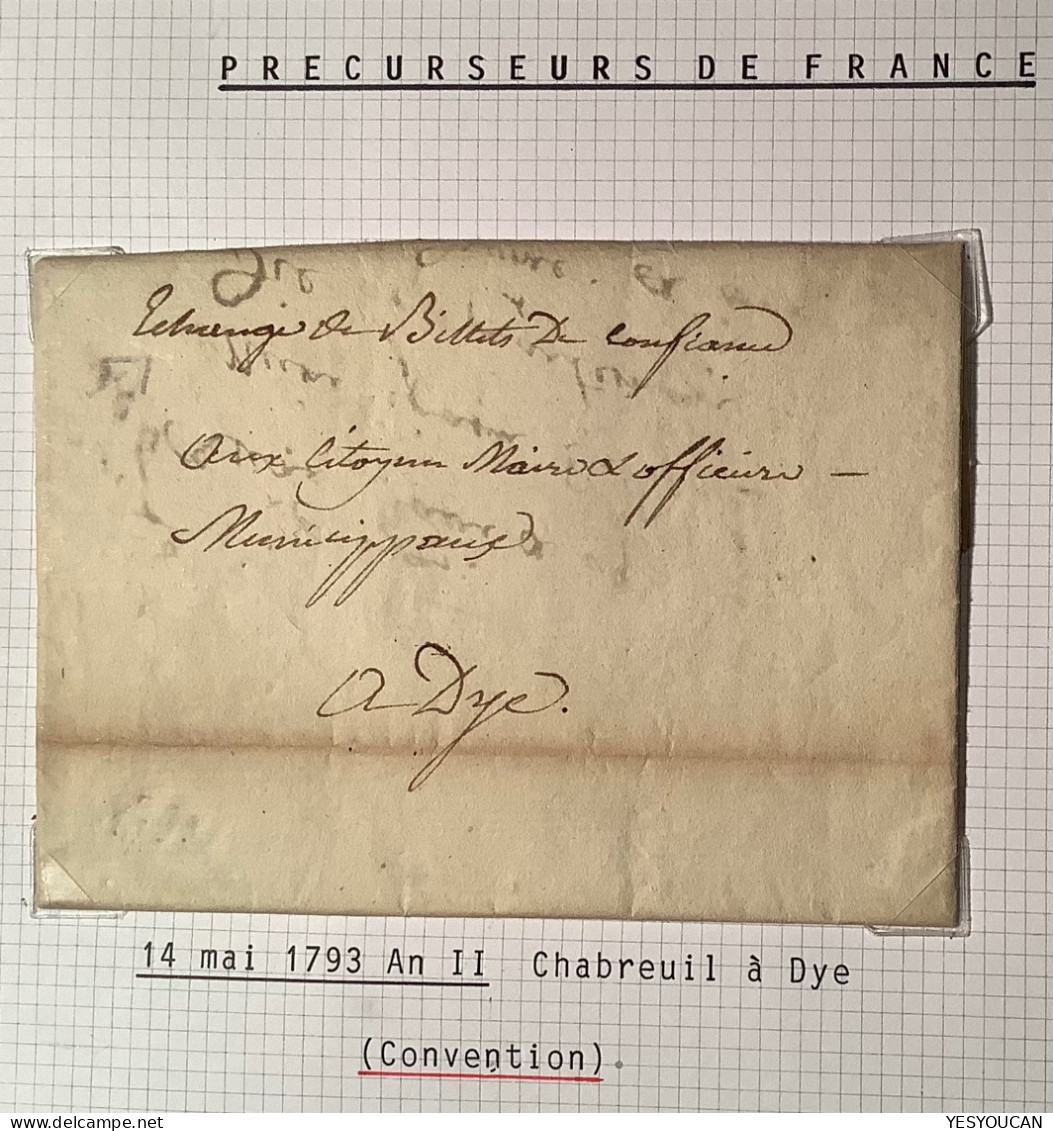 PRECURSEURS DE FRANCE
Echange de Billets De confiance
Aux Citoyens Maire & officiers —
Municippaux
A Dye.
14 mai 1793 An II Chabreuil à Dye
(Convention).
YESYOUCAN